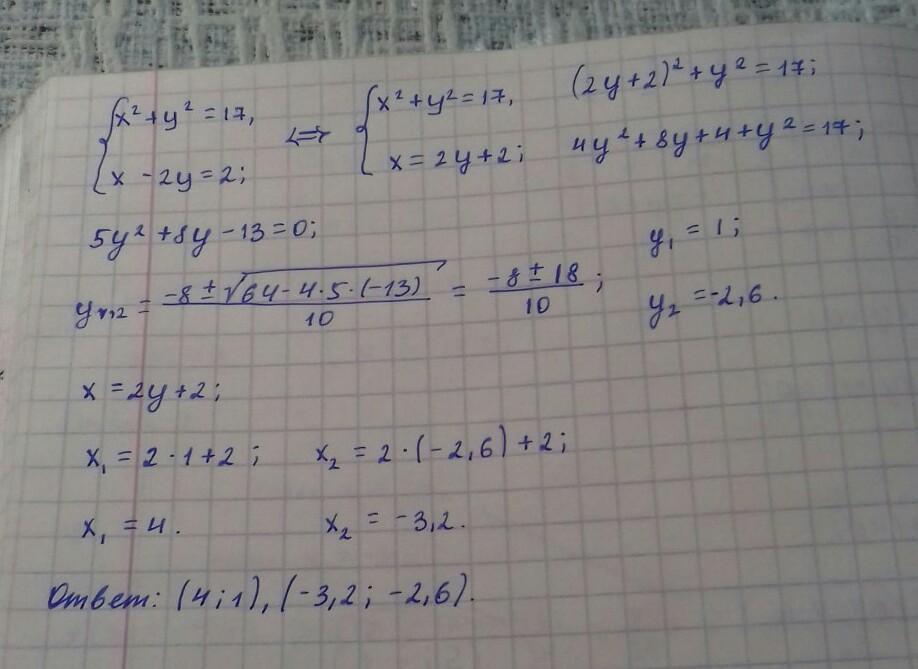 {x² + y² = 17, x - 2y = 2; ⟺ {x² + y² = 17, x = 2y + 2;
(2y + 2)² + y² = 17;
4y² + 8y + 4 + y² = 17;
5y² + 8y - 13 = 0;
y₁,₂ = (-8 ± √(64 - 4·5·(-13)))/10 = (-8 ± 18)/10;
y₁ = 1;
y₂ = -2,6.
x = 2y + 2;
x₁ = 2·1 + 2; x₂ = 2·(-2,6) + 2;
x₁ = 4. x₂ = -3,2.
Ответ: (4; 1), (-3,2; -2,6).